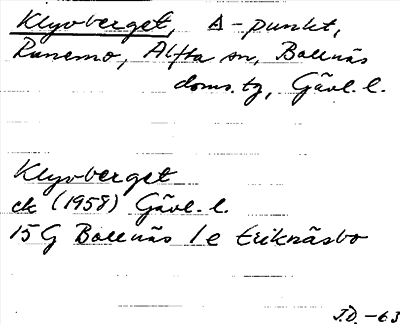 Klyvberget, Δ-punkt,
Runemo, Alfta sn, Bollnäs
doms.tg, Gävl.l.
Klyvberget
ek (1958) Gävl.l.
15G Bollnäs 1e Eriknäsbo
J.D. -63